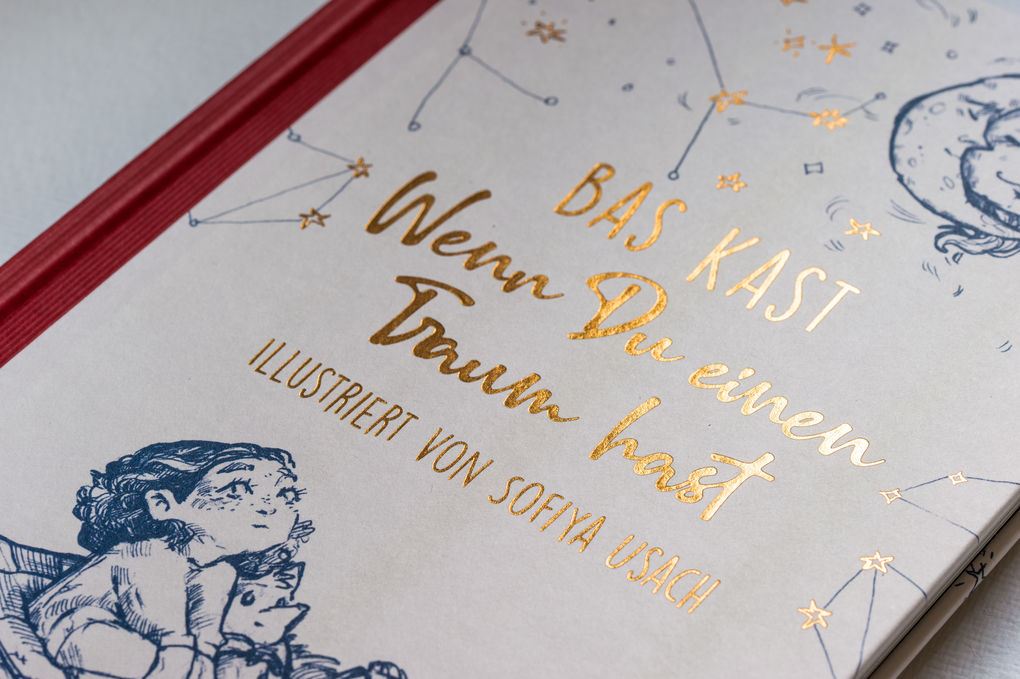 BAS KAST
Wenn Du einen
Traum hast
ILLUSTRIERT VON SOFIYA USACH